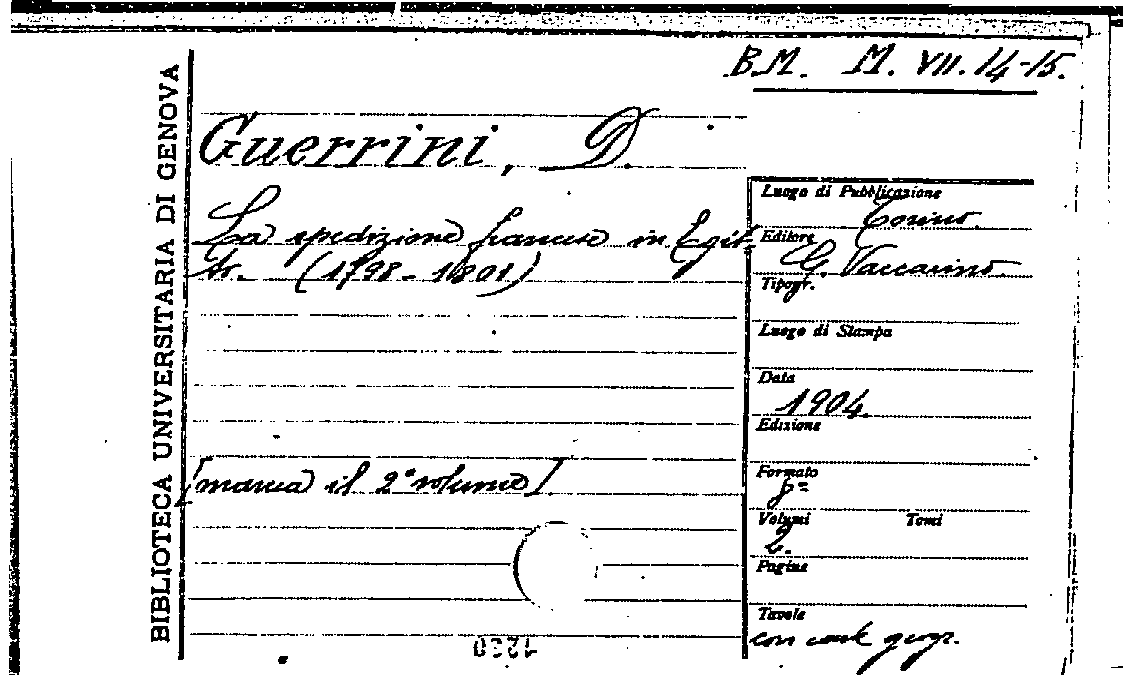 B.M. M. VII. 14-15.
BIBLIOTECA UNIVERSITARIA DI GENOVA
Guerrini, D.
La spedizione francese in Egit-
to. (1798-1801)
[manca il 2° volume].
Luogo di Pubblicazione
Torino.
Editore
G. Vaccarino.
Tipogr.
Luogo di Stampa
Data
1904
Edizione
Formato
8°
Volumi Tomi
2.
Pagine
Tavole
con cart geogr.